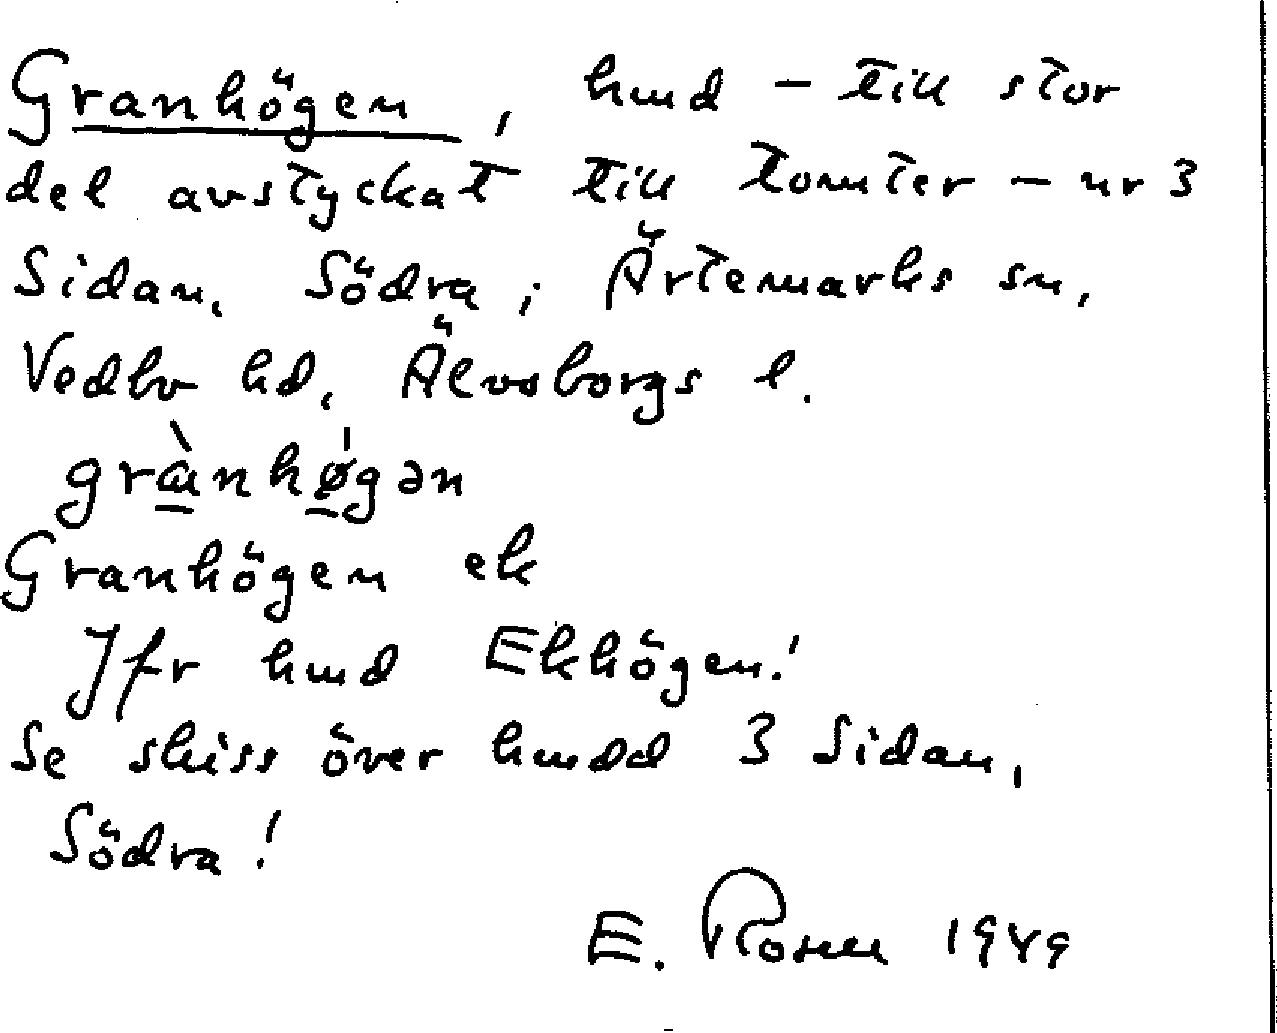 Granhögen, hmd – till stor
del avstyckat till tomter – nr 3
Sidan, Södra, i Ärtemarks sn,
Vedbo hd, Älvsborgs l.
grànhø̀gən
Granhögen ek
Jfr hmd Ekhögen!
Se skiss över hmdd 3 Sidan,
Södra!
E. Rosell 1949